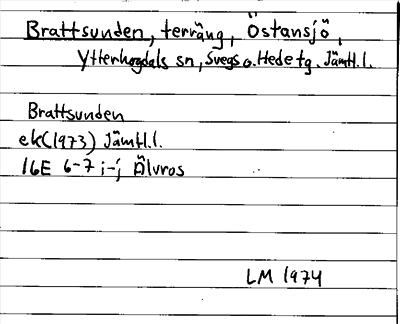 Brattsunden, terräng, Östansjö,
Ytterhogdals sn, Svegs o. Hede tg. Jämtl. l.
Brattsunden
ek (1973) Jämtl. l.
16E 6-7 i-j Älvros
LM 1974